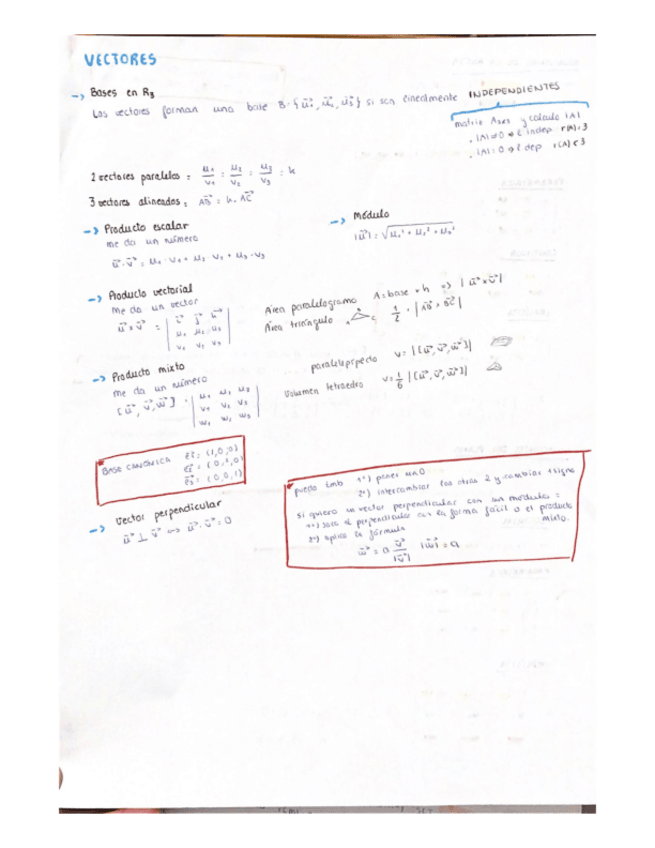 VECTORES
→ Bases en R3
Los vectores forman una base B={u1, u2, u3} si son linealmente INDEPENDIENTES
matriz A3x3 y calculo |A|
. |A|≠0 → l indep r(A)=3
. |A|=0 → l dep r(A)<3
2 vectores paralelos = u1/v1 = u2/v2 = u3/v3 = k
3 vectores alineados: AB = k·AC
→ Producto escalar
me da un número
u·v = u1·v1 + u2·v2 + u3·v3
→ Módulo
|u| = √u1² + u2² + u3²
→ Producto vectorial
me da un vector
u x v = | i j k |
u1 u2 u3
v1 v2 v3
Área paralelogramo A=base x h → |u x v|
Área triángulo 1/2 · |AB x BC|
→ Producto mixto
me da un número
[u, v, w] = | u1 u2 u3 |
v1 v2 v3
w1 w2 w3
paralelepípedo V=|[u, v, w]|
Volumen tetraedro V=1/6 |[u, v, w]|
BASE CANÓNICA e1 = (1,0,0)
e2 = (0,1,0)
e3 = (0,0,1)
→ Vector perpendicular
u ⊥ v ↔ u·v = 0
puedo tmb 1º) poner un 0
2º) intercambiar los otros 2 y cambiar 1 signo
Si quiero un vector perpendicular con un modulo:
1º) saco el perpendicular con la forma fácil o el producto mixto.
2º) aplico la fórmula
w = a v/|v| |w| = a